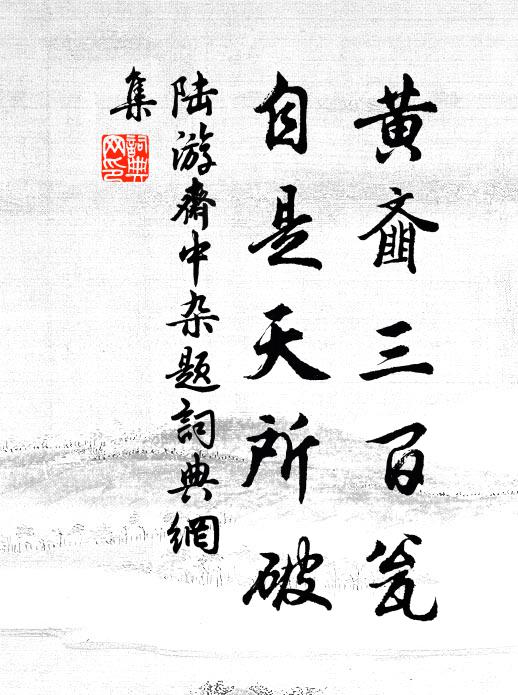 黄齑三百瓮
自是天所破
陆游斋中杂题詞典網
集
詞典网印